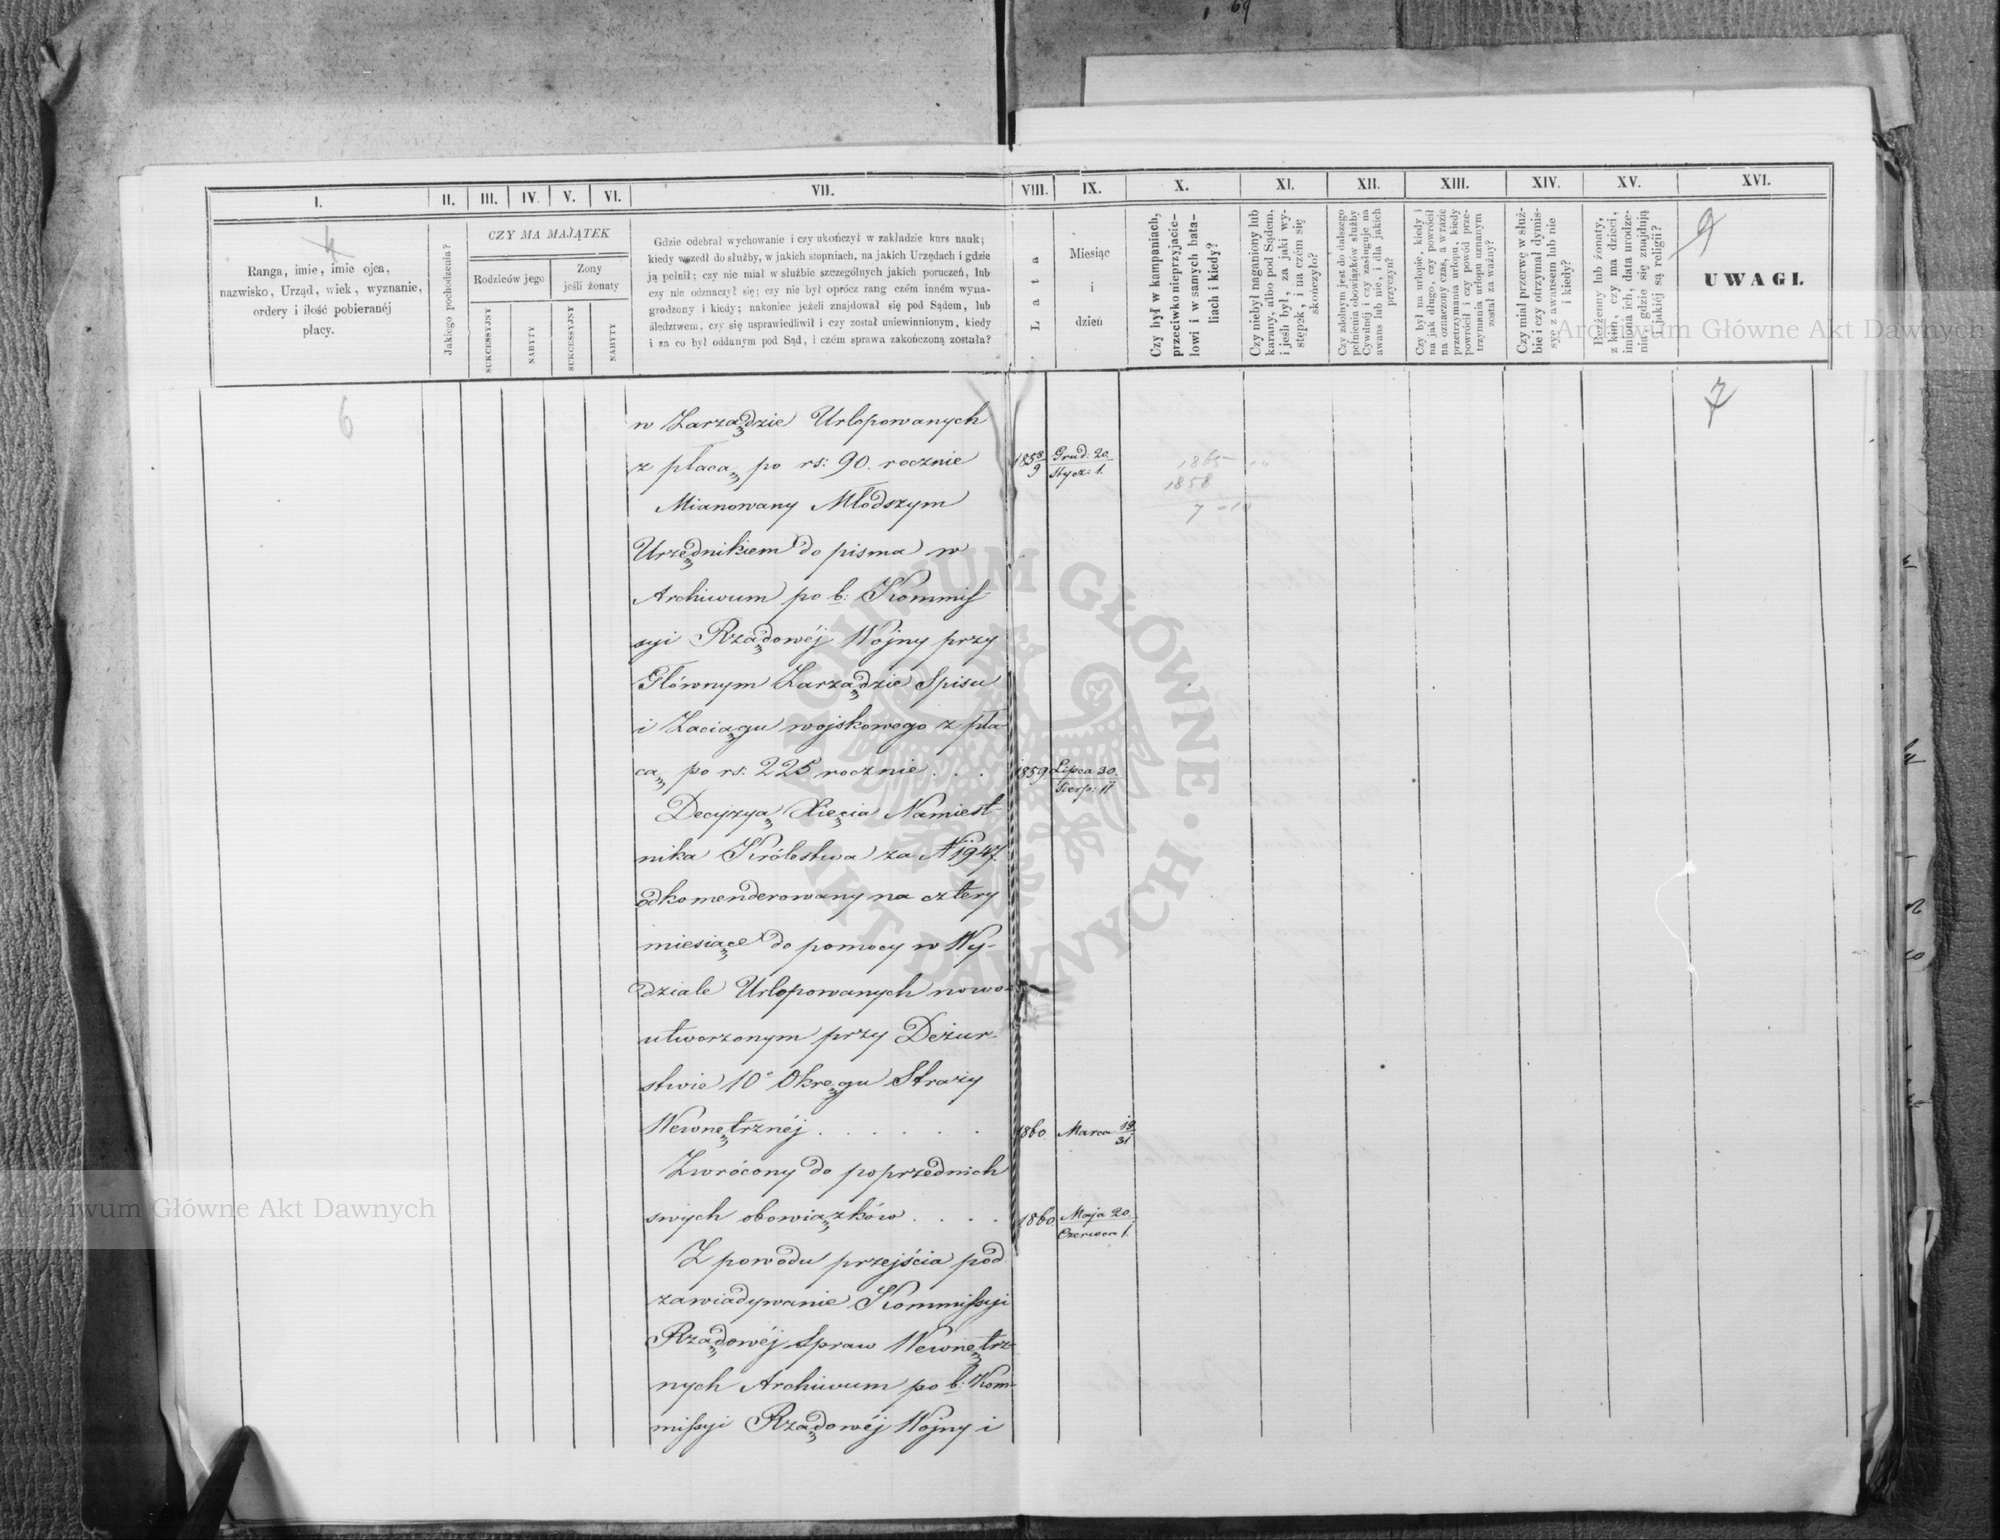 69
I. II. III. IV. V. VI. VII. VIII. IX. X. XI. XII. XIII. XIV. XV. XVI.
4
Ranga, imie, imie ojca,
nazwisko, Urząd, wiek, wyznanie,
ordery i ilość pobieranéj
płacy.
Jakiego pochodzenia?
CZY MA MAJĄTEK
Rodziców jego
Zony
jeśli żonaty
SUKCESSYJNY
NABYTY
SUKCESSYJNY
NABYTY
Gdzie odebrał wychowanie i czy ukończył w zakładzie kurs nauk;
kiedy wszedł do służby, w jakich stopniach, na jakich Urzędach i gdzie
ją pełnił; czy nie miał w służbie szczególnych jakich poruczeń, lub
czy nie odznaczył się; czy nie był oprócz rang czém inném wyna-
grodzony i kiedy; nakoniec jeżeli znajdował się pod Sądem, lub
śledztwem, czy się usprawiedliwił i czy został uniewinnionym, kiedy
i za co był oddanym pod Sąd, i czém sprawa zakończoną została?
Lata
Miesiąc
i
dzień
Czy był w kampaniach,
przeciwko nieprzyjacie-
lowi i w samych bita-
liach i kiedy?
Czy niebył naganiony lub
karany, albo pod Sądem,
i jesli był, za jaki wy-
stępek, i na czem się
skończyło?
Czy zdolnym jest do dalszego
pełnienia obowiązków służby
Cywilnéj i czy zasługuje na
awans lub nie, i dla jakich
przyczyn?
Czy był na urlopie, kiedy i
na jak długo, czy powrócił
na oznaczony czas, a w razie
przetrzymania urlopu, kiedy
powrócił i czy powód prze-
trzymania urlopu uznanym
został za ważny?
Czy miał przerwę w służ-
bie i czy otrzymał dymis-
syę z awansem lub nie
i kiedy?
Bezżenny lub żonaty,
z kim, czy ma dzieci,
imiona ich, data urodze-
nia, gdzie się znajdują
i jakiéj są religii?
9
UWAGI.
Archiwum Główne Akt Dawnych
6
7
w Zarządzie Urlopowanych
z płacą po rs: 90. rocznie 1858/9 Grud: 20./Stycz: 1.
1865
1858
7 - 10
Mianowany Młodszym
Urzędnikiem do pisma w
Archiwum po b: Kommis-
syi Rządowéj Wojny przy
Głównym Zarządzie Spisu
i Zaciągu wojskowego z pła-
cą po rs: 225 rocznie . . . 1859. Lipca 30./Sierp: 11
Decyzyą Xięcia Namiest-
nika Królestwa za No 1947.
odkomenderowany na cztery
miesiące do pomocy w Wy-
dziale Urlopowanych nowo-
utworzonym przy Dezur-
stwie 10o Okręgu Straży
Wewnętrznéj . . . . . . 1860 Marca 19/31
Zwrócony do poprzednich
swych obowiązków . . . . 1860. Maja 20./Czerwca 1.
Z powodu przejścia pod
zawiadywanie Kommissyi
Rządowéj Spraw Wewnętrz-
nych Archiwum po b: Kom-
missyi Rządowéj Wojny i
ARCHIWUM GŁÓWNE • AKT DAWNYCH •
Archiwum Główne Akt Dawnych